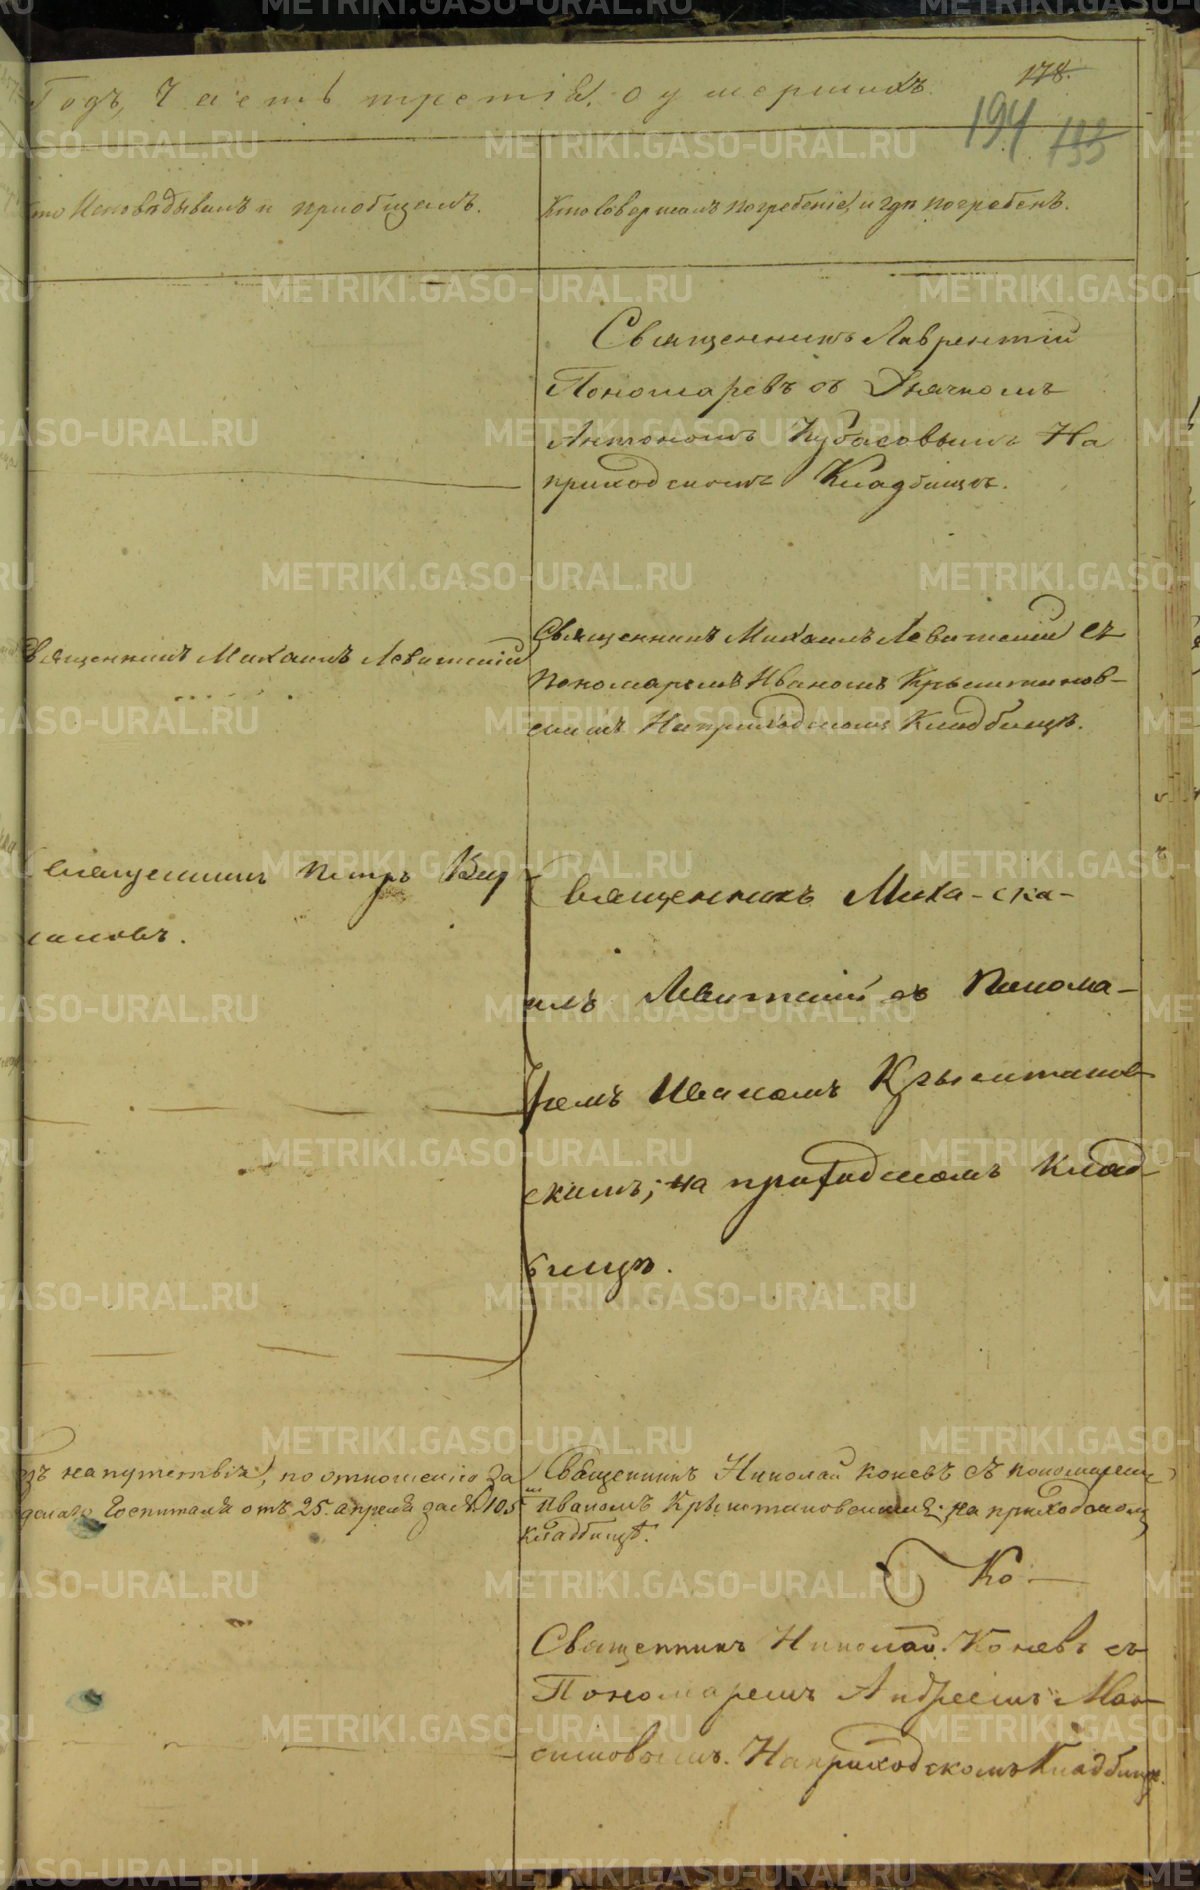 Годъ, Часть третія, о умершихъ.
178.
194 133
Кто Исповѣдывалъ и пріобщалъ.
Кто совершалъ погребеніе, и гдѣ погребенъ.
Священникъ Лаврентій
Пономаревъ съ Дьячкомъ
Антономъ Кубасовымъ На
приходскомъ Кладбищѣ.
Священникъ Михаилъ Левитскій
Священникъ Михаилъ Левитскій съ
Пономаремъ Иваномъ Крыштанов-
скимъ На приходскомъ Кладбищѣ.
Священникъ Петръ
Священникъ Миха-
илъ Левитскій съ Понома-
ремъ Иваномъ Крыштанов-
скимъ; на приходскомъ Клад-
бищѣ.
напутствія, по отношенію За
Госпиталя отъ 25. апреля за № 105
Священникъ Николай Коневъ съ пономаремъ
Иваномъ Крыштановскимъ; на приходскомъ
Кладбищѣ.
Ко
Священникъ Николай Коневъ съ
Пономаремъ Андреемъ Мак-
симовымъ. На приходскомъ Кладбищѣ.
METRIKI.GASO-URAL.RU